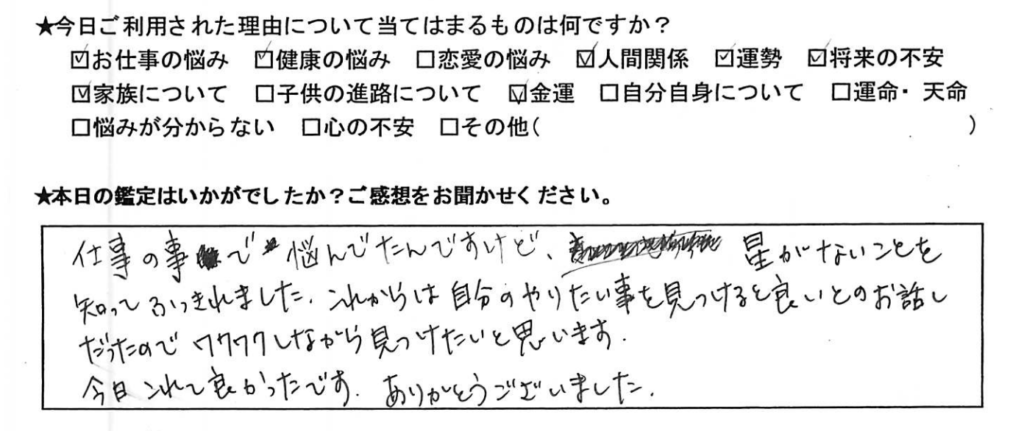 ★今日ご利用された理由について当てはまるものは何ですか？
☑お仕事の悩み ☑健康の悩み □恋愛の悩み ☑人間関係 ☑運勢 ☑将来の不安
☑家族について □子供の進路について ☑金運 □自分自身について □運命・天命
□悩みが分からない □心の不安 □その他( )
★本日の鑑定はいかがでしたか？ご感想をお聞かせください。
仕事の事で悩んでたんですけど、星がないことを
知ってふっきれました。これからは自分のやりたい事を見つけると良いとのお話し
だったのでワクワクしながら見つけたいと思います。
今日これて良かったです。ありがとうございました。